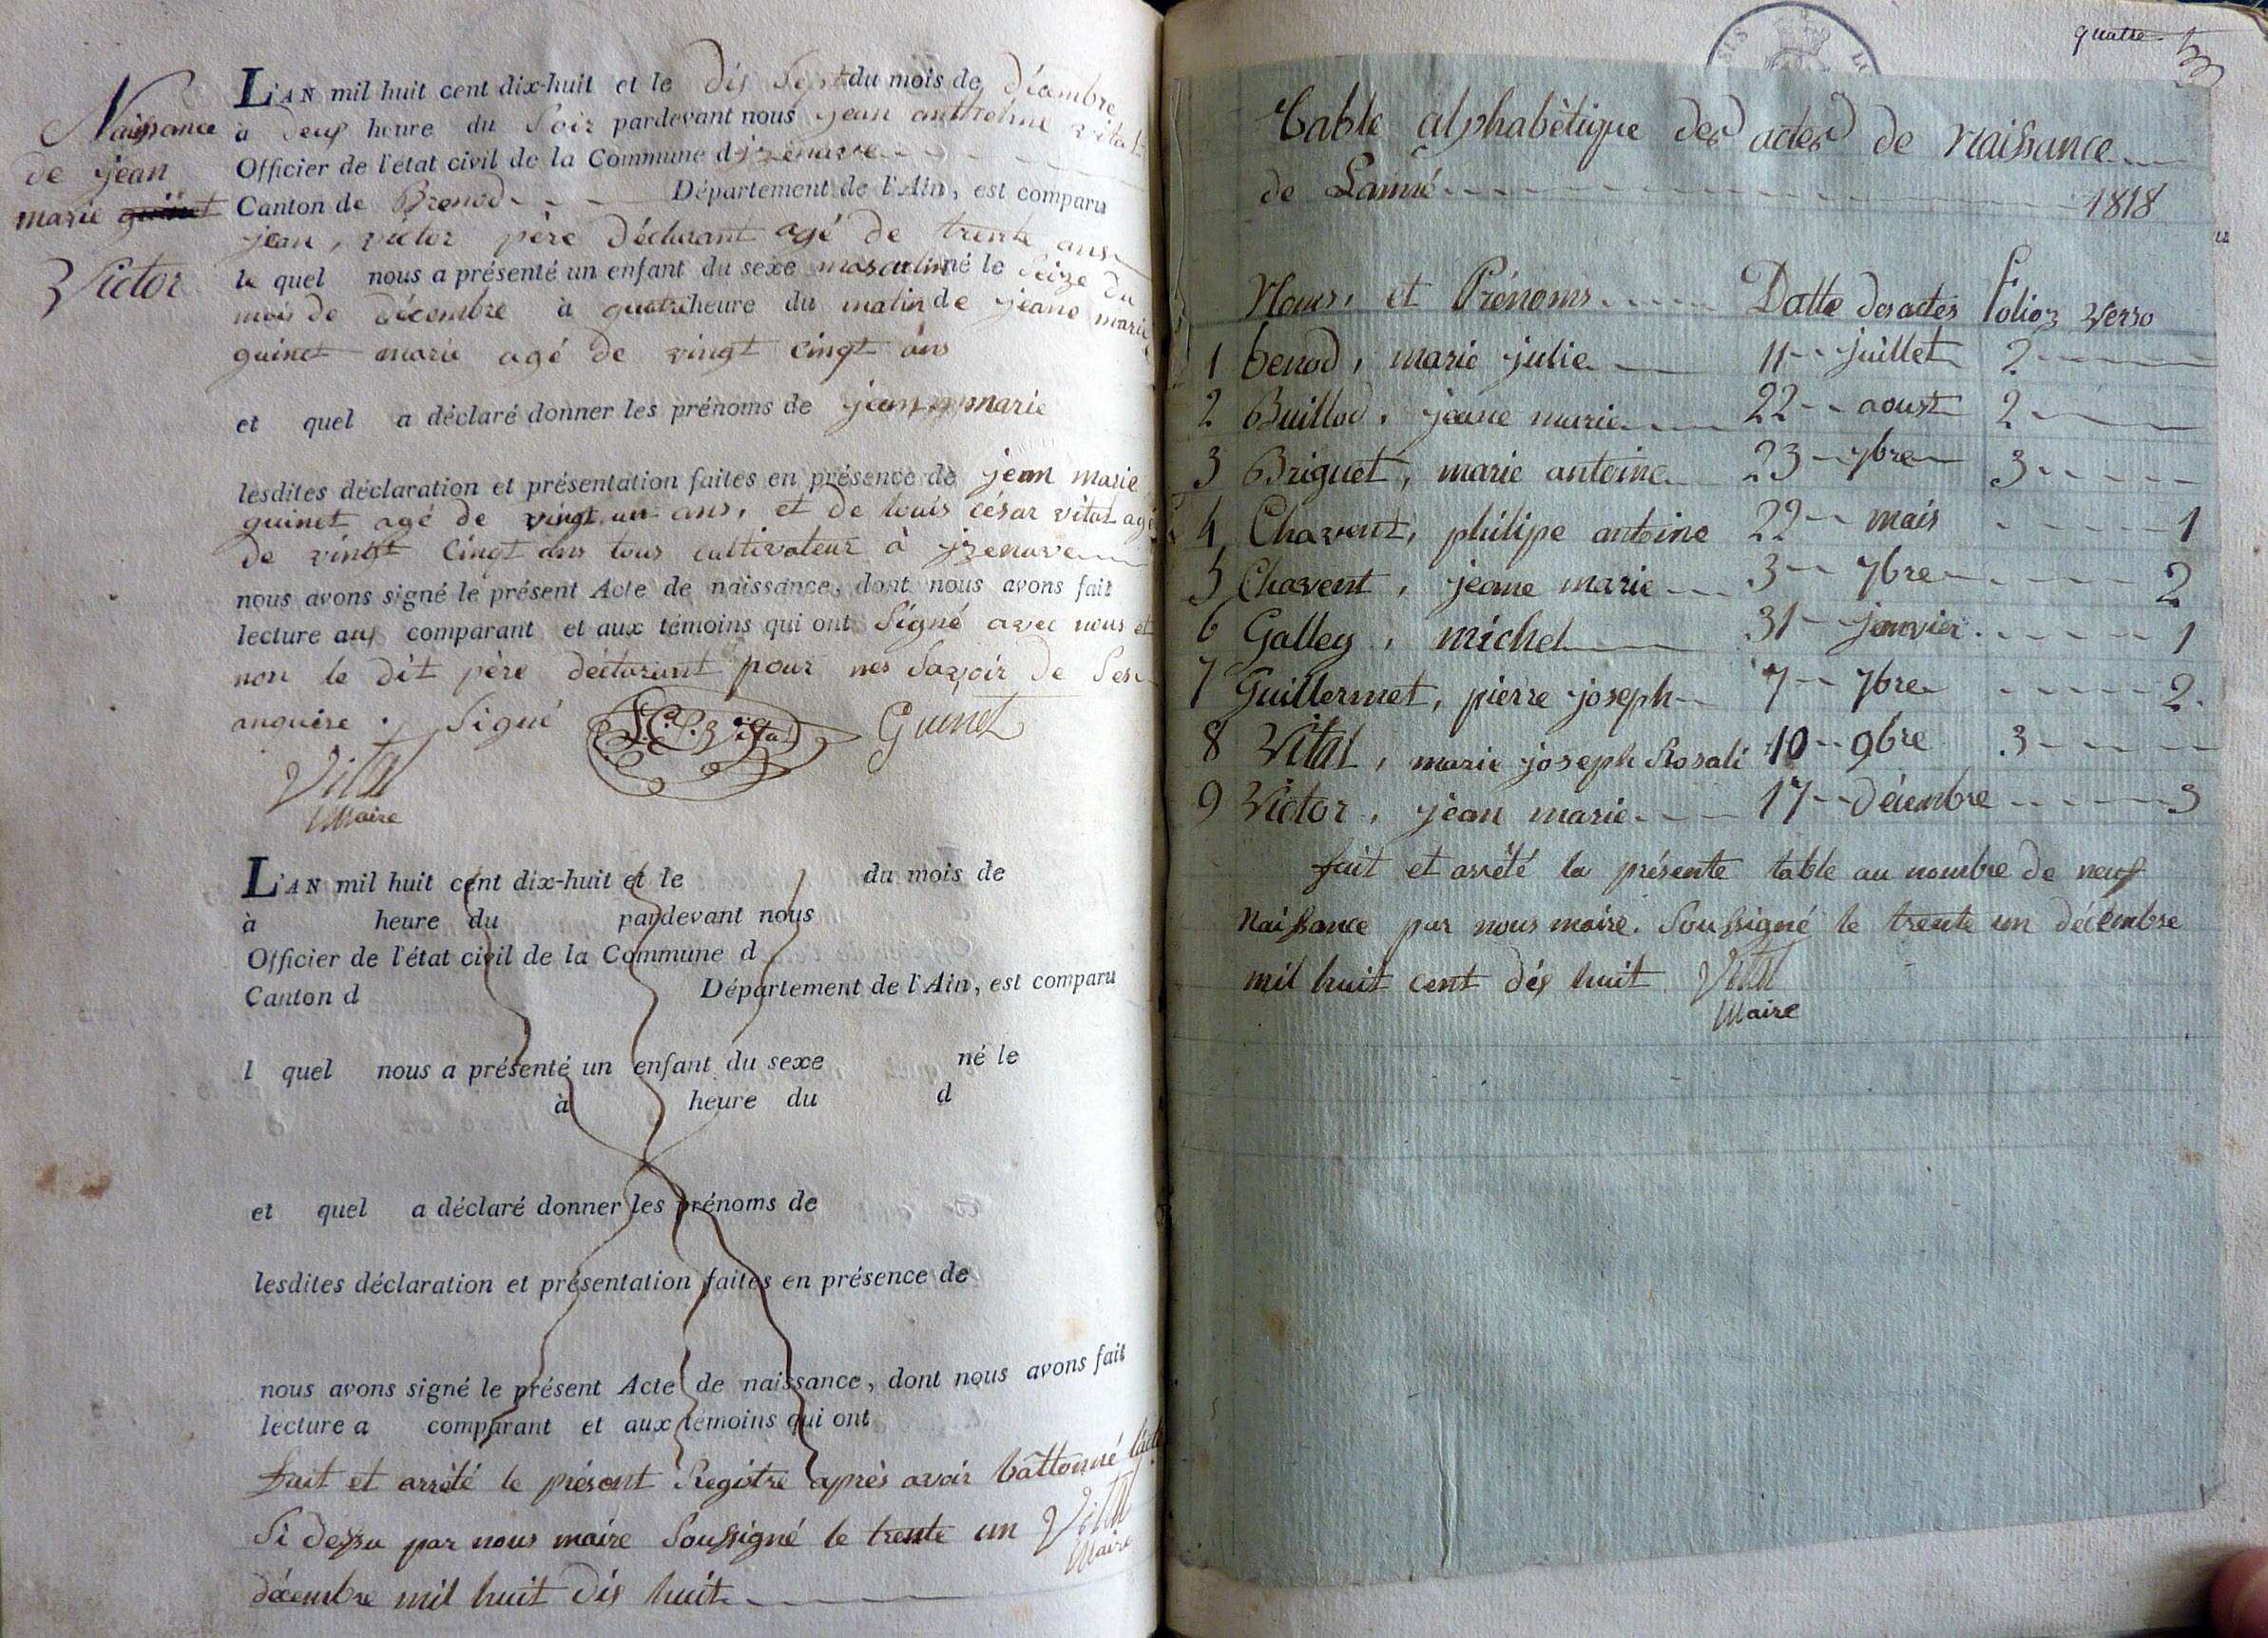 Naissance
de jean
marie guinet
Victor
L'AN mil huit cent dix-huit et le dis sept du mois de décembre
à deux heure du soir pardevant nous jean anthelme vital
Officier de l'état civil de la Commune d jzenave
Canton de Brenod Département de l'Ain, est comparu
jean, victor père déclarant agé de trente ans
le quel nous a présenté un enfant du sexe masculin né le seize du
mois de décembre à quatre heure du matin de jeane marie
guinet marie agé de vingt cingt ans
et quel a déclaré donner les prénoms de jean marie
lesdites déclaration et présentation faites en présence de jean marie
guinet agé de vingt un ans, et de louis césar vital agé
de vingt cingt ans tous cultivateur à jzenave
nous avons signé le présent Acte de naissance, dont nous avons fait
lecture aux comparant et aux témoins qui ont signé avec nous et
non le dit père déclarant pour nes savoir de ses
anquere. signé L.C. Vital Guinet
Vital
Maire
L'AN mil huit cent dix-huit et le du mois de
à heure du pardevant nous
Officier de l'état civil de la Commune d
Canton d Département de l'Ain, est comparu
l quel nous a présenté un enfant du sexe né le
à heure du d
et quel a déclaré donner les prénoms de
lesdites déclaration et présentation faites en présence de
nous avons signé le présent Acte de naissance, dont nous avons fait
lecture a comparant et aux témoins qui ont
fait et arrêté le présent Registre après avoir battonné l'acte
si dessu par nous maire soussigné le trente un Vital
Maire
décembre mil huit dis huit
quatre
Table alphabètique des actes de naissance
de Lanné 1818
Noms, et Prénoms Datte des actes folios verso
1 benod, marie julie 11 juillet 2
2 Buillod, jeane marie 22 aoust 2
3 Briguet, marie antoine 23 7bre 3
4 Chavent, philipe antoine 22 mais 1
5 Chavent, jeane marie 3 7bre 2
6 Galley, michel 31 janvier 1
7 Guillermet, pierre joseph 7 7bre 2
8 Vital, marie joseph Rosali 10 9bre 3
9 Victor, jean marie 17 décembre 3
fait et arrêté la présente table au nombre de neuf
naissance par nous maire soussigné le trente un décembre
mil huit cent dix huit Vital
Maire